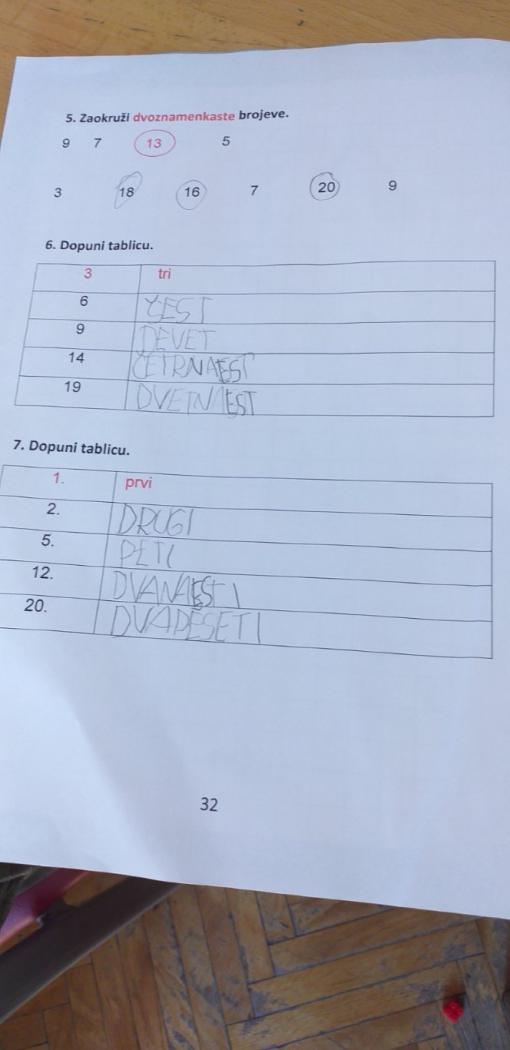 5. Zaokruži dvoznamenkaste brojeve.
9 7 13 5
3 18 16 7 20 9
6. Dopuni tablicu.
3 tri
6 ŠEST
9 DEVET
14 ČETRNAEST
19 DVETNAEST
7. Dopuni tablicu.
1. prvi
2. DRUGI
5. PETI
12. DVANAESTI
20. DVADESETI
32